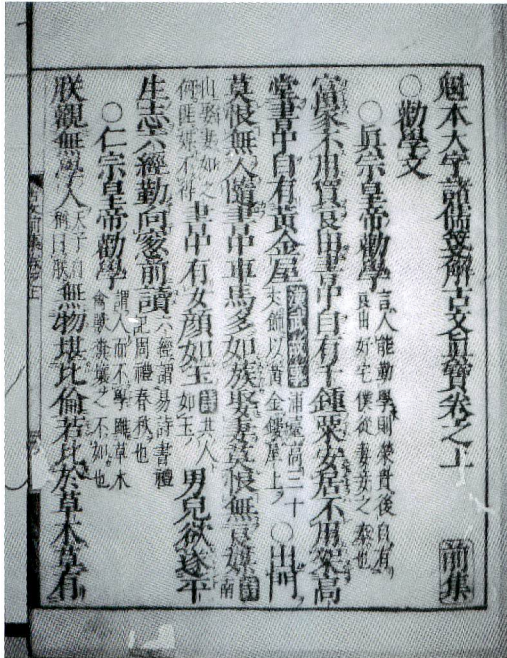 魁本大字諸儒箋解古文眞寶卷之上 前集
○勸學文
○眞宗皇帝勸學 言人能勤學則榮貴後自有良田好宅僕從妻妾之奉也
富家不用買良田書中自有千鍾粟安居不用架高
堂書中自有黃金屋 漢武故事 臺高三十丈飾以黃金鏤屋上 ○出門
莫恨無人隨書中車馬多如族娶妻莫恨無良媒 詩南
山娶妻如之何匪媒不得 書中有女顔如玉 詩其人如玉 男兒欲遂平
生志六經勤向窓前讀 六經謂易詩書禮記周禮春秋也
○仁宗皇帝勸學 謂人而不學雖草木禽獸糞壤之不如也
朕觀無學人 天子自稱曰朕 無物堪比倫若比於草木草有